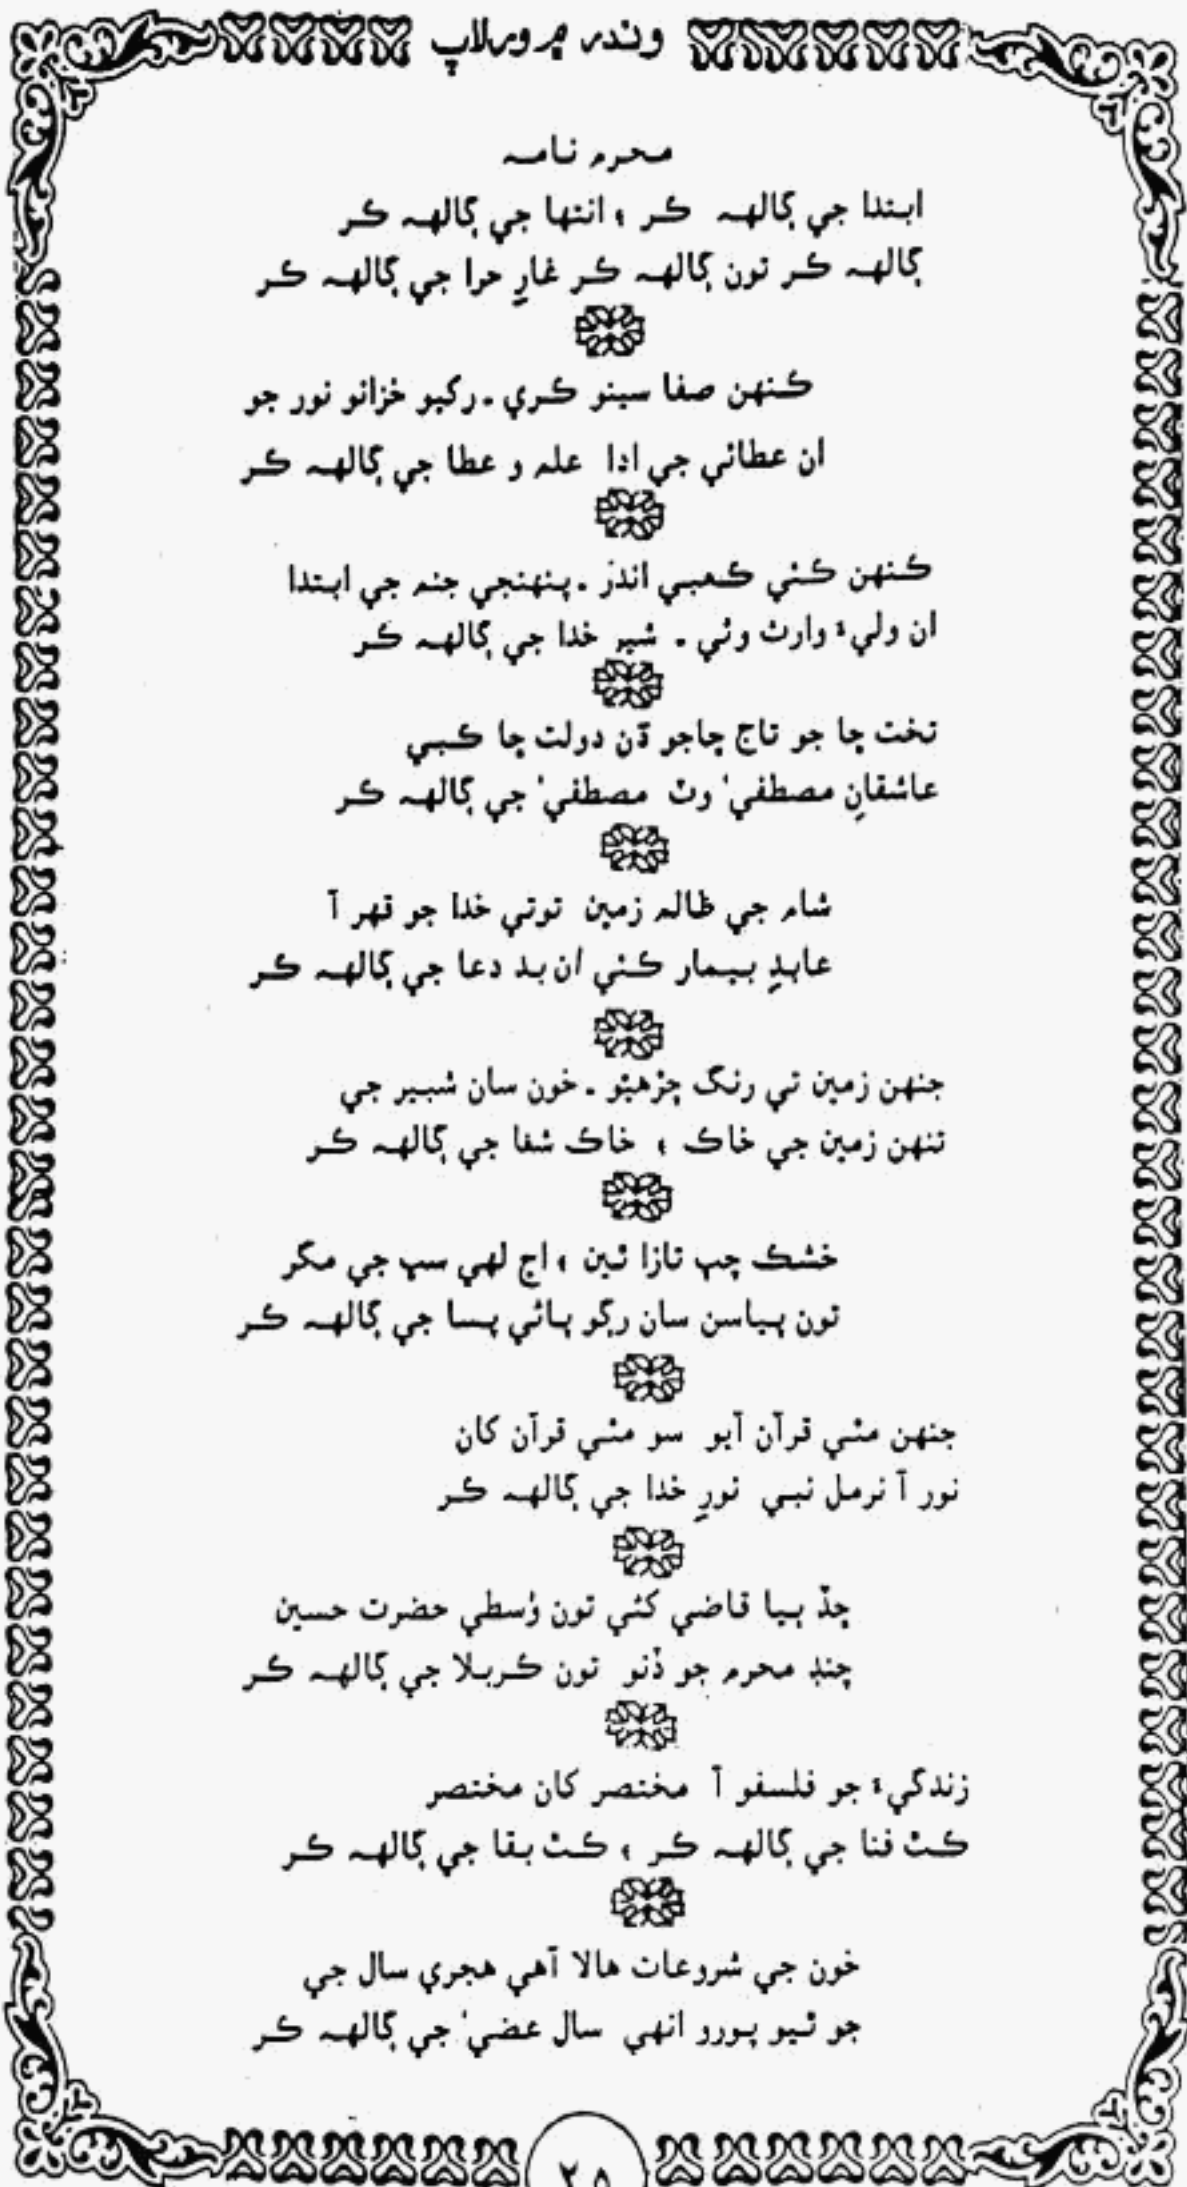 وندر ۾ ورلاپ
محرم نامہ
ابتدا جي ڳالهہ ڪر ۽ انتها جي ڳالهہ ڪر
ڳالهہ ڪر تون ڳالهہ ڪر غارِ حرا جي ڳالهہ ڪر
ڪنهن صفا سينو ڪري ۔ رکيو خزانو نور جو
ان عطائي جي ادا علم و عطا جي ڳالهہ ڪر
ڪنهن ڪئي ڪعبي اندر ۔ پنهنجي جنم جي ابتدا
ان وليءَ وارث وٽي ۔ شير خدا جي ڳالهہ ڪر
تخت ڇا جو تاج ڇاجو ڌن دولت ڇا ڪبي
عاشقانِ مصطفيٰ وٽ مصطفيٰ جي ڳالهہ ڪر
شام جي ظالم زمين توتي خدا جو قهر آ
عابدِ بيمار ڪئي ان بد دعا جي ڳالهہ ڪر
جنهن زمين تي رنگ چڙهيو ۔ خون سان شبير جي
تنهن زمين جي خاڪ ۽ خاڪ شفا جي ڳالهہ ڪر
خشڪ چپ تازا ٿين ۽ اڃ لهي سڀ جي مگر
تون پياسن سان رڳو پاڻي پسا جي ڳالهہ ڪر
جنهن مٿي قرآن آيو سو مٿي قرآن کان
نور آ نرمل نبي نورِ خدا جي ڳالهہ ڪر
ڇڏ ٻيا قاضي کڻي تون وُسطي حضرت حسين
چنڊ محرم جو ڏٺو تون ڪربلا جي ڳالهہ ڪر
زندگيءَ جو فلسفو آ مختصر کان مختصر
ڪٿ فنا جي ڳالهہ ڪر ۽ ڪٿ بقا جي ڳالهہ ڪر
خون جي شروعات هالا آهي هجري سال جي
جو ٿيو پورو انهي سال عضيٰ جي ڳالهہ ڪر